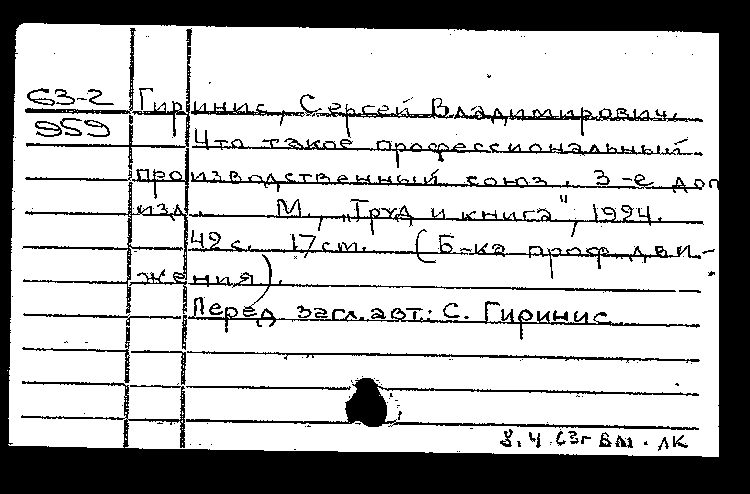 63-2
959
Гиринис, Сергей Владимирович.
Что такое профессиональный
производственный союз. 3-е доп
изд. М., „Труд и книга", 1924.
42 с. 17 см. (Б-ка проф. дви-
жения).
Перед загл. авт.: С. Гиринис
8.4 63г ВМ. ЛК